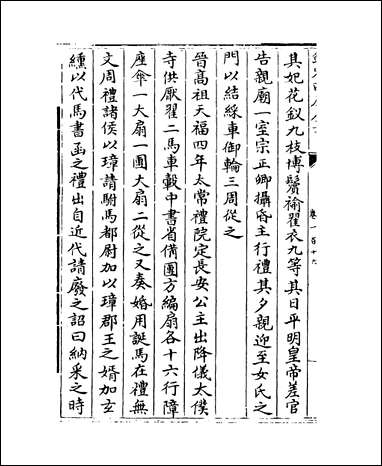 其妃花釵九枝博鬢褕翟衣九等其日平明皇帝差官
告親廟一室宗正卿攝昏主行禮其夕親迎至女氏之
門以結綵車御輪三周從之
晉高祖天福四年太常禮院定長安公主出降儀太僕
寺供厭翟二馬車轂中書省備團方編扇各十六行障
座傘一大扇一團大扇二從之又奏婚用誕馬在禮無
文周禮諸侯以璋請駙馬都尉加以璋郡王之婿加玄
纁以代馬書函之禮出自近代請廢之詔曰納采之時